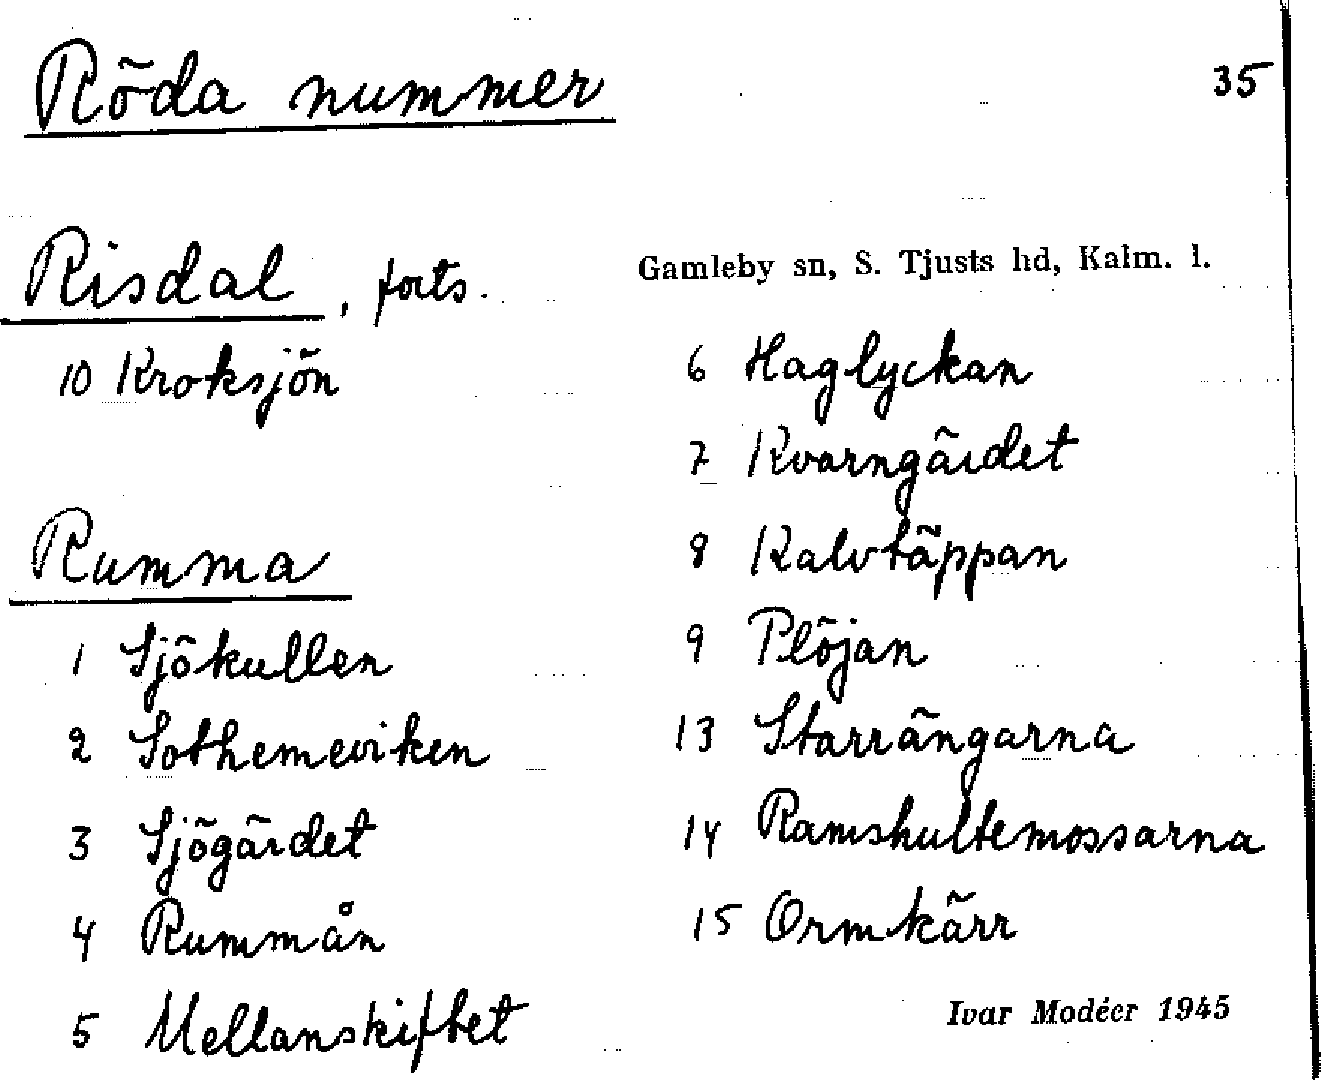 Röda nummer
35
Risdal, forts.
Gamleby sn, S. Tjusts hd, Kalm. l.
10 Kroksjön
Rumma
1 Sjökullen
2 Sothemeviken
3 Sjögärdet
4 Rummån
5 Mellanskiftet
6 Haglyckan
7 Kvarngärdet
8 Kalvtäppan
9 Plöjan
13 Starrängarna
14 Ramshultemossarna
15 Ormkärr
Ivar Modéer 1945